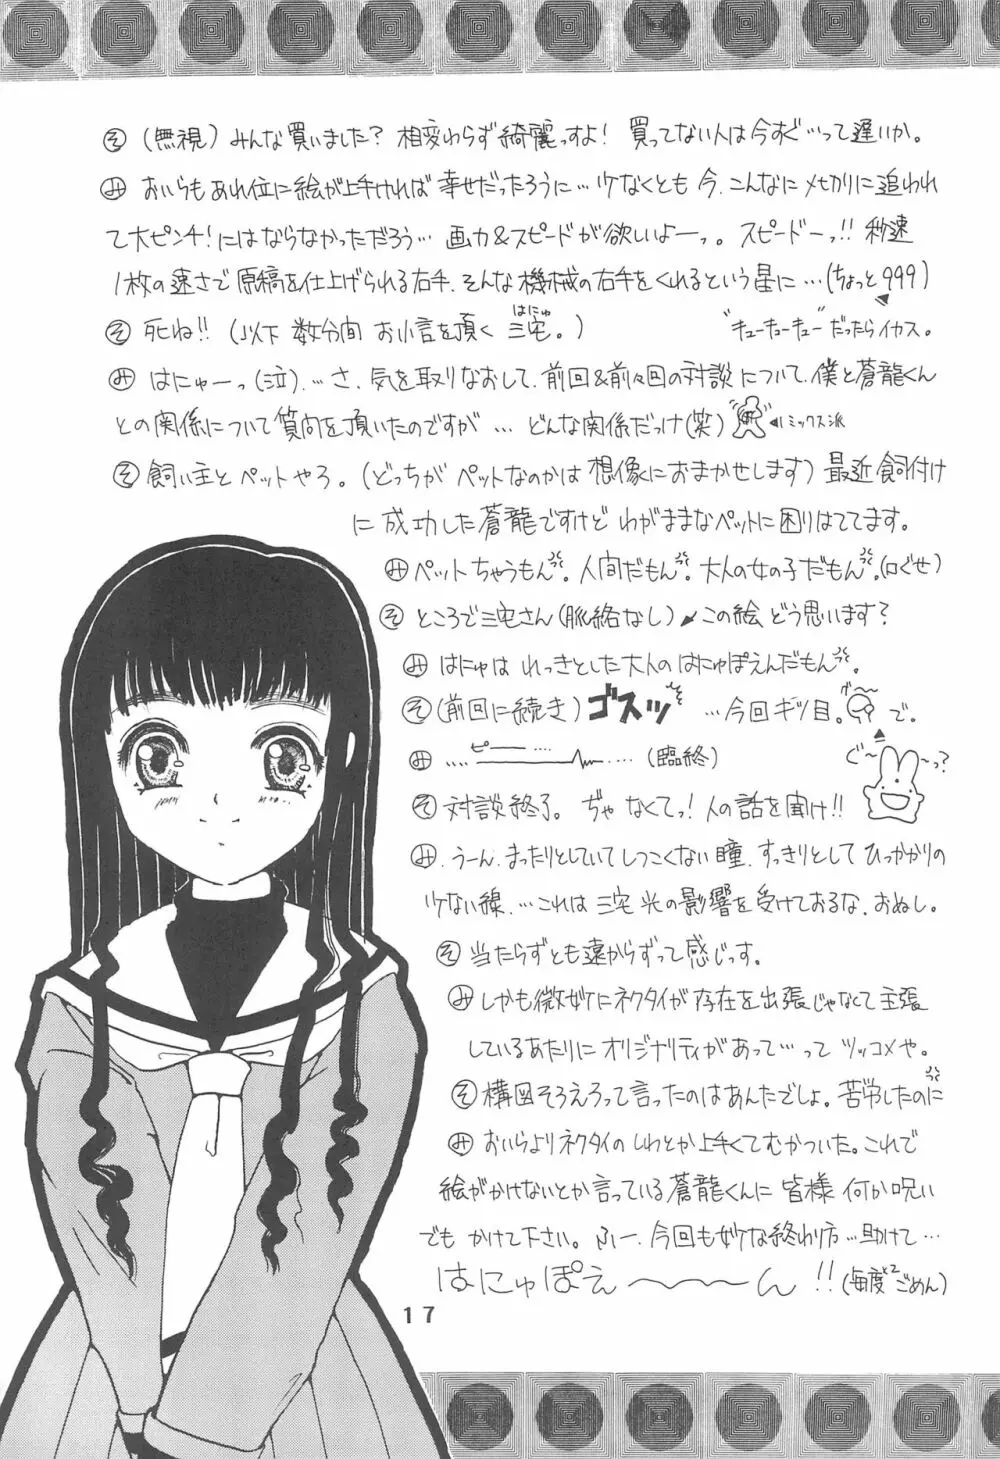 そ (無視) みんな買いました? 相変わらず綺麗っすよ! 買ってない人は今すぐ…って遅いか。
み おいらもあれ位に絵が上手ければ幸せだったろうに…少なくとも今、こんなにメせカリに追われ
て大ピンチ!にはならなかっただろう… 画力&スピードが欲しいよーっ。スピードーっ!! 秒速
1枚の速さで原稿を仕上げられる右手、そんな機械の右手をくれるという星に…(ちょっと999)
そ 死ね!! (以下 数分間 お小言を頂く 三宅。)
はにゅ
"キューキューキュー"だったらイカス。
み はにゃーっ(泣)…さ、気を取りなおして、前回&前々回の対談について、僕と蒼龍くん
との関係について質問を頂いたのですが … どんな関係だっけ(笑)
ミックス派
そ 飼い主とペットやろ。(どっちがペットなのかは想像におまかせします) 最近飼付け
に成功した蒼龍ですけど わがままなペットに困りはててます。
み ペットちゃうもん。人間だもん。大人の女の子だもん。(口ぐせ)
そ ところで三宅さん(脈絡なし) この絵 どう思います?
み はにゅは れっきとした大人のはにゅぽえんだもん。
そ (前回に続き) ゴスッ …今回ギツ目。 で。
み …. ピー ….… (臨終)
ぐ〜 〜っ?
そ 対談終了。ぢゃなくてっ! 人の話を聞け!!
み うーん、まったりとしていてしつこくない瞳、すっきりとしてひっかかりの
少ない線、…これは 三宅 光の影響を受けておるな、おぬし。
そ 当たらずとも遠からずって感じっす。
み しかも微妙にネクタイが存在を出張じゃなくて主張
しているあたりにオリジナリティがあって…って ツッコメや。
そ 構図そろえろって言ったのはあんたでしょ。苦労したのに
み おいらよりネクタイのしわとか上手くてむかついた。これで
絵がかけないとか言っている蒼龍くんに皆様 何か呪い
でも かけて下さい。ふー、今回も妙な終わり方…助けて…
はにゅぽえ〜〜〜ん !! (毎度×2ごめん)
17